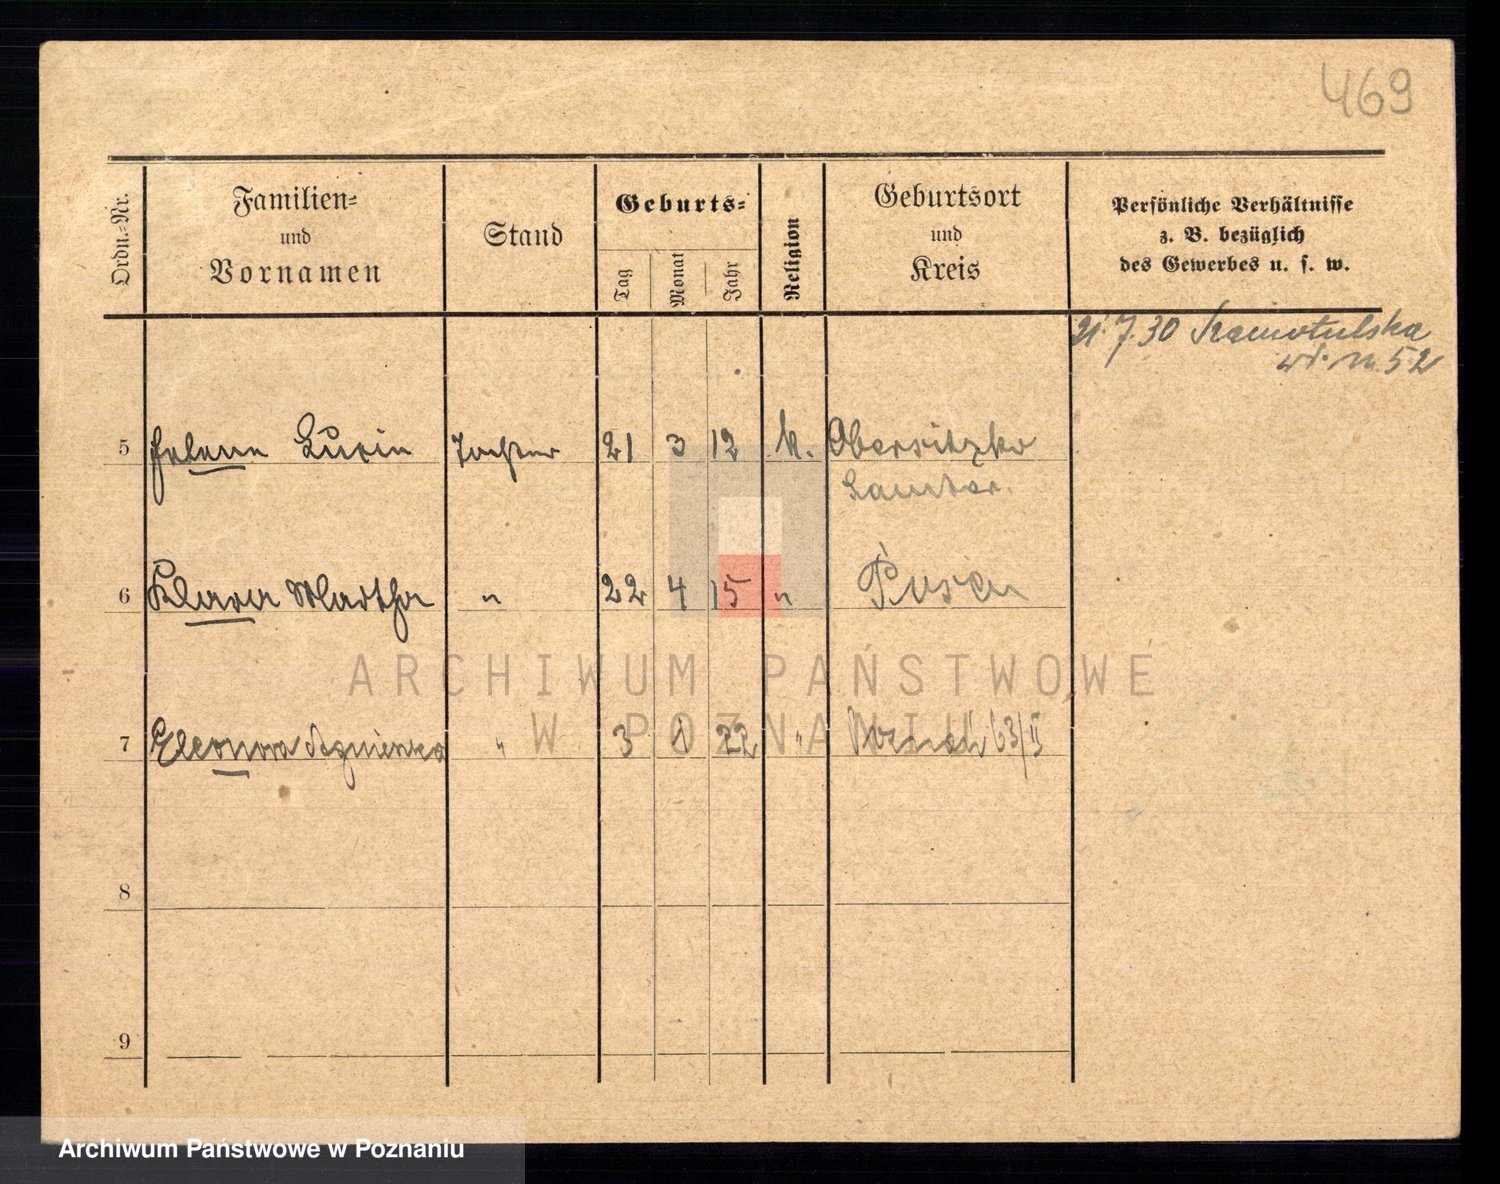 469
Ordn.-Nr.
Familien-
und
Vornamen
Stand
Geburts-
Tag
Monat
Jahr
Religion
Geburtsort
und
Kreis
Persönliche Verhältnisse
z. B. bezüglich
des Gewerbes u. s. w.
21.7.30 Szamotulska
m. 52
5 Helene Luzie Tochter 21 3 12 k. Obersitzko
Samter.
6 Klara Martha " 22 4 15 " Posen
7 Eleonora Agnieszka " 3 1 22 " Poznań 63/II
8
9
ARCHIWUM PAŃSTWOWE
W POZNANIU
Archiwum Państwowe w Poznaniu